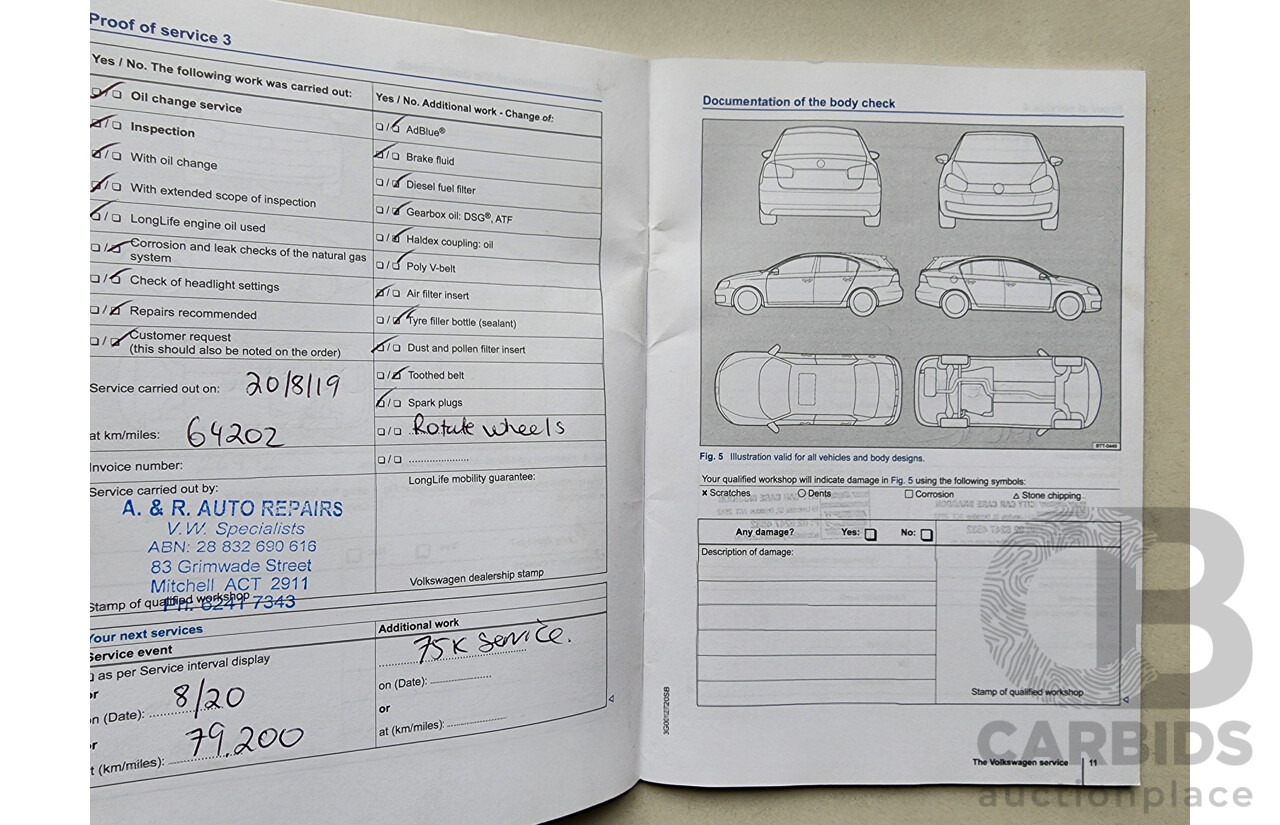 Proof of service 3
Yes / No. The following work was carried out:
Oil change service
Inspection
With oil change
With extended scope of inspection
LongLife engine oil used
Corrosion and leak checks of the natural gas
system
Check of headlight settings
Repairs recommended
Customer request
(this should also be noted on the order)
Service carried out on: 20/8/19
at km/miles: 64202
Invoice number:
Service carried out by:
A. & R. AUTO REPAIRS
V.W. Specialists
ABN: 28 832 690 616
83 Grimwade Street
Mitchell ACT 2911
PH: 6241 7343
Stamp of qualified workshop
Yes / No. Additional work - Change of:
AdBlue®
Brake fluid
Diesel fuel filter
Gearbox oil: DSG®, ATF
Haldex coupling: oil
Poly V-belt
Air filter insert
Tyre filler bottle (sealant)
Dust and pollen filter insert
Toothed belt
Spark plugs
Rotate wheels
LongLife mobility guarantee:
Volkswagen dealership stamp
Your next services
Service event
as per Service interval display
or
on (Date): 8/20
or
at (km/miles): 79.200
Additional work
75K Service.
on (Date):
or
at (km/miles):
Documentation of the body check
BTT-0449
Fig. 5 Illustration valid for all vehicles and body designs.
Your qualified workshop will indicate damage in Fig. 5 using the following symbols:
× Scratches ○ Dents □ Corrosion △ Stone chipping
Any damage? Yes: No:
Description of damage:
Stamp of qualified workshop
3G0012720SB
The Volkswagen service 11
CB
CARBIDS
auctionplace